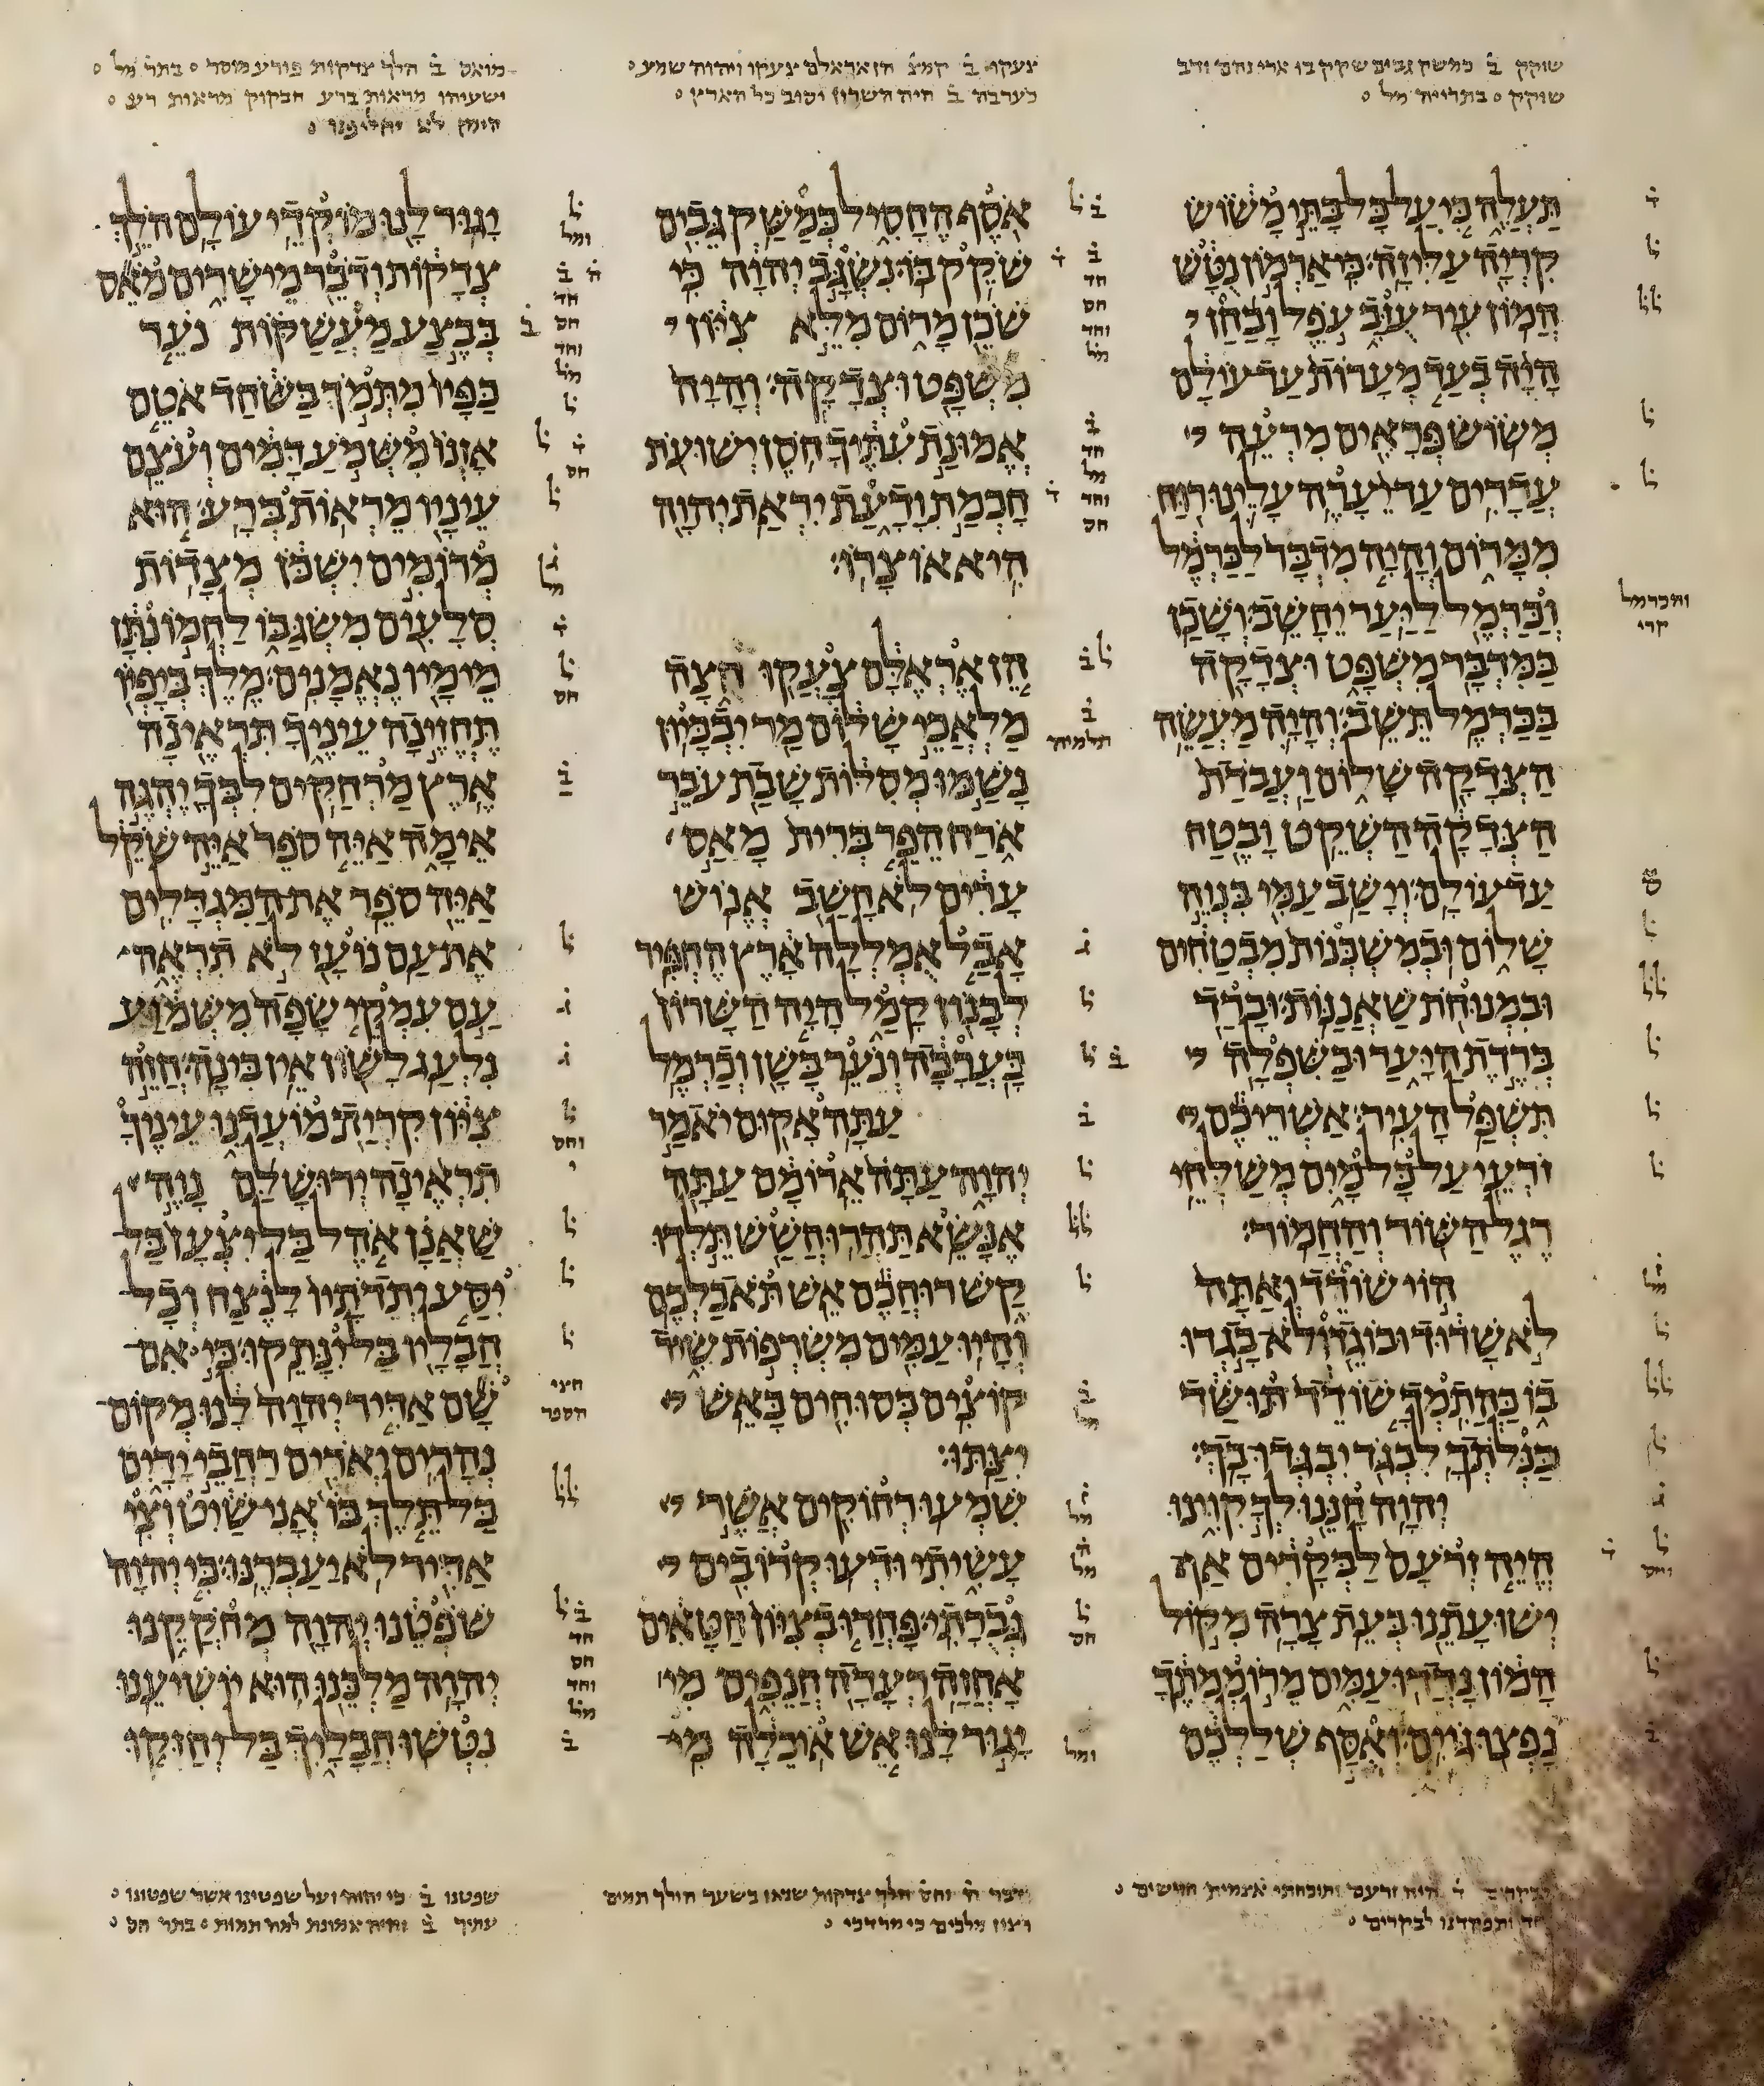 שוקק ב̇ כמשק גבים שקק בו ארי נהם ודב
שוקק ○ בתרייה מל ○
צעקו ב̇ קמצ הן אראלם צעקו ויהוה שמע ○
כערבה ב̇ היה השרון יסוב כל הארץ ○
מואס ב̇ הלך צדקות פורע מוסר ○ בתר מל ○
ישעיהו מראות ברע חבקוק מראות רע ○
המן לא יחליפנו ○
תַּעֲלֶה כִּי עַל כָּל בָּתֵּי מָשׂוֹשׂ
קִרְיָה עַלִּיזָה׃ כִּי אַרְמוֹן נֻטָּשׁ
הֲמוֹן עִיר עֻזָּב עֹפֶל וָבַחַן
הָיָה בְעַד מְעָרוֹת עַד עוֹלָם
מְשׂוֹשׂ פְּרָאִים מִרְעֵה
עֲדָרִים׃ עַד יֵעָרֶה עָלֵינוּ רוּחַ
מִמָּרוֹם וְהָיָה מִדְבָּר לַכַּרְמֶל
וְכַרְמֶל לַיַּעַר יֵחָשֵׁב׃ וְשָׁכַן
בַּמִּדְבָּר מִשְׁפָּט וּצְדָקָה
בַּכַּרְמֶל תֵּשֵׁב׃ וְהָיָה מַעֲשֵׂה
הַצְּדָקָה שָׁלוֹם וַעֲבֹדַת
הַצְּדָקָה הַשְׁקֵט וָבֶטַח
עַד עוֹלָם׃ וְיָשַׁב עַמִּי בִּנְוֵה
שָׁלוֹם וּבְמִשְׁכְּנוֹת מִבְטַחִים
וּבִמְנוּחֹת שַׁאֲנַנּוֹת׃ וּבָרַד
בְּרֶדֶת הַיָּעַר וּבַשִּׁפְלָה
תִּשְׁפַּל הָעִיר׃ אַשְׁרֵיכֶם
זֹרְעֵי עַל כָּל מָיִם מְשַׁלְּחֵי
רֶגֶל הַשּׁוֹר וְהַחֲמוֹר׃
הוֹי שׁוֹדֵד וְאַתָּה
לֹא שָׁדוּד וּבוֹגֵד וְלֹא בָגְדוּ
בוֹ כַּהֲתִמְךָ שׁוֹדֵד תּוּשַּׁד
כַּנְּלֹתְךָ לִבְגֹּד יִבְגְּדוּ בָךְ׃
יְהוָה חָנֵּנוּ לְךָ קִוִּינוּ
הֱיֵה זְרֹעָם לַבְּקָרִים אַף
יְשׁוּעָתֵנוּ בְּעֵת צָרָה׃ מִקּוֹל
הָמוֹן נָדְדוּ עַמִּים מֵרוֹמְמֻתֶךָ
נָפְצוּ גּוֹיִם׃ וְאֻסַּף שְׁלַלְכֶם
והכרמל
קרי
אֹסֶף הֶחָסִיל כְּמַשַּׁק גֵּבִים
שֹׁקֵק בּוֹ׃ נִשְׂגָּב יְהוָה כִּי
שֹׁכֵן מָרוֹם מִלֵּא צִיּוֹן
מִשְׁפָּט וּצְדָקָה׃ וְהָיָה
אֱמוּנַת עִתֶּיךָ חֹסֶן יְשׁוּעֹת
חָכְמַת וָדָעַת יִרְאַת יְהוָה
הִיא אוֹצָרוֹ׃
הֵן אֶרְאֶלָּם צָעֲקוּ חֻצָה
מַלְאֲכֵי שָׁלוֹם מַר יִבְכָּיוּן׃
נָשַׁמּוּ מְסִלּוֹת שָׁבַת עֹבֵר
אֹרַח הֵפֵר בְּרִית מָאַס
עָרִים לֹא חָשַׁב אֱנוֹשׁ׃
אָבַל אֻמְלְלָה אָרֶץ הֶחְפִּיר
לְבָנוֹן קָמַל הָיָה הַשָּׁרוֹן
כָּעֲרָבָה וְנֹעֵר בָּשָׁן וְכַרְמֶל׃
עַתָּה אָקוּם יֹאמַר
יְהוָה עַתָּה אֵרוֹמָם עַתָּה
אֶנָּשֵׂא׃ תַּהֲרוּ חֲשַׁשׁ תֵּלְדוּ
קַשׁ רוּחֲכֶם אֵשׁ תֹּאכַלְכֶם׃
וְהָיוּ עַמִּים מִשְׂרְפוֹת שִׂיד
קוֹצִים כְּסוּחִים בָּאֵשׁ
יִצַּתּוּ׃
שִׁמְעוּ רְחוֹקִים אֲשֶׁר
עָשִׂיתִי וּדְעוּ קְרוֹבִים
גְּבֻרָתִי׃ פָּחֲדוּ בְצִיּוֹן חַטָּאִים
אָחֲזָה רְעָדָה חֲנֵפִים מִי
יָגוּר לָנוּ אֵשׁ אוֹכֵלָה מִי
יָגוּר לָנוּ מוֹקְדֵי עוֹלָם׃ הֹלֵךְ
צְדָקוֹת וְדֹבֵר מֵישָׁרִים מֹאֵס
בְּבֶצַע מַעֲשַׁקּוֹת נֹעֵר
כַּפָּיו מִתְּמֹךְ בַּשֹּׁחַד אֹטֵם
אָזְנוֹ מִשְּׁמֹעַ דָּמִים וְעֹצֵם
עֵינָיו מֵרְאוֹת בְּרָע׃ הוּא
מְרוֹמִים יִשְׁכֹּן מְצָדוֹת
סְלָעִים מִשְׂגַּבּוֹ לַחְמוֹ נִתָּן
מֵימָיו נֶאֱמָנִים׃ מֶלֶךְ בְּיָפְיוֹ
תֶּחֱזֶינָה עֵינֶיךָ תִּרְאֶינָה
אֶרֶץ מַרְחַקִּים׃ לִבְּךָ יֶהְגֶּה
אֵימָה אַיֵּה סֹפֵר אַיֵּה שֹׁקֵל
אַיֵּה סֹפֵר אֶת הַמִּגְדָּלִים׃
אֶת עַם נוֹעָז לֹא תִרְאֶה
עַם עִמְקֵי שָׂפָה מִשְּׁמוֹעַ
נִלְעַג לָשׁוֹן אֵין בִּינָה׃ חֲזֵה
צִיּוֹן קִרְיַת מוֹעֲדֵנוּ עֵינֶיךָ
תִרְאֶינָה יְרוּשָׁלִַם נָוֶה
שַׁאֲנָן אֹהֶל בַּל יִצְעָן בַּל
יִסַּע יְתֵדֹתָיו לָנֶצַח וְכָל
חֲבָלָיו בַּל יִנָּתֵקוּ׃ כִּי אִם
שָׁם אַדִּיר יְהוָה לָנוּ מְקוֹם
נְהָרִים יְאֹרִים רַחֲבֵי יָדָיִם
בַּל תֵּלֶךְ בּוֹ אֳנִי שַׁיִט וְצִי
אַדִּיר לֹא יַעַבְרֶנּוּ׃ כִּי יְהוָה
שֹׁפְטֵנוּ יְהוָה מְחֹקְקֵנוּ
יְהוָה מַלְכֵּנוּ הוּא יוֹשִׁיעֵנוּ׃
נִטְּשׁוּ חֲבָלָיִךְ בַּל יְחַזְּקוּ
חצי
הספר
לבקרים ד̇ היה זרעם ותוכחתי אצמית חדשים
ותפקדנו לבקרים ○
ודבר ח̇ וחס הלך צדקות שנאו בשער הולך תמים
רצון מלכים כי מרדכי ○
שפטנו ב̇ כי יהוה ועל שפטינו אשר שפטונו ○
עתיך ב̇ והיה אמונת למה תמות ○ בתר חס ○